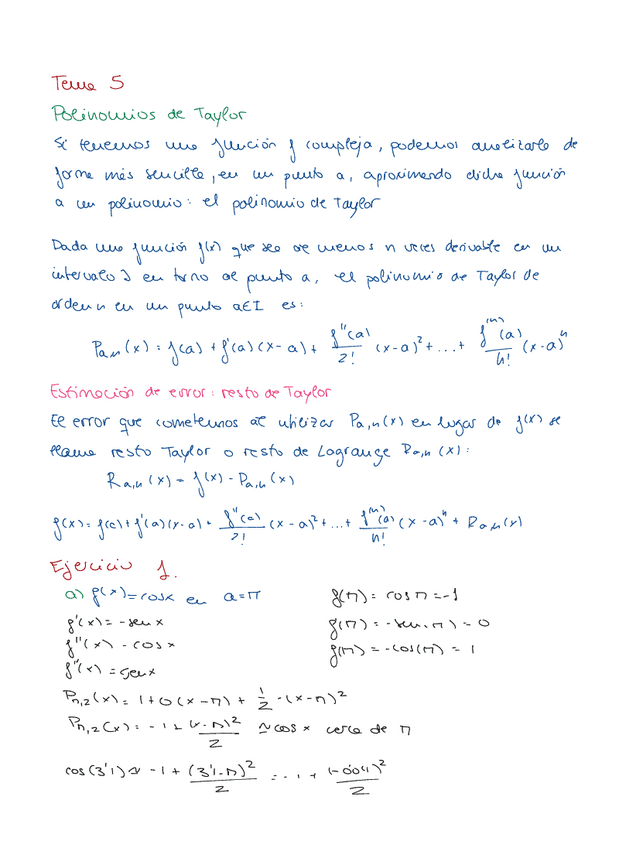 Tema 5
Polinomios de Taylor
Si tenemos una función f compleja, podemos analizarla de
forma más sencilla, en un punto a, aproximando dicha función
a un polinomio: el polinomio de Taylor
Dada una función f(x) que sea al menos n veces derivable en un
intervalo I en torno al punto a, el polinomio de Taylor de
orden n en un punto a∈I es:
Pa,n(x) = f(a) + f'(a)(x-a) + f''(a)/2! (x-a)² + ... + f⁽ⁿ⁾(a)/n! (x-a)ⁿ
Estimación de error: resto de Taylor
El error que cometemos al utilizar Pa,n(x) en lugar de f(x) se
llama resto Taylor o resto de Lagrange Ra,n(x):
Ra,n(x) = f(x) - Pa,n(x)
f(x) = f(a) + f'(a)(x-a) + f''(a)/2! (x-a)² + ... + f⁽ⁿ⁾(a)/n! (x-a)ⁿ + Ra,n(x)
Ejercicio 1.
a) f(x)=cosx en a=π f(π) = cosπ = -1
f'(x) = -sen x f(π) = -sen π) = 0
f''(x) - cos x f(π) = -cos(π) = 1
f''(x) = sen x
Pπ,2(x) = 1+0(x-π) + 1/2 ·(x-π)²
Pπ,2(x) = -1 + (x-π)²/2 ≃cos x cerca de π
cos(3'1) ≃ -1 + (3'1-π)²/2 = -1 + (-0'04)²/2